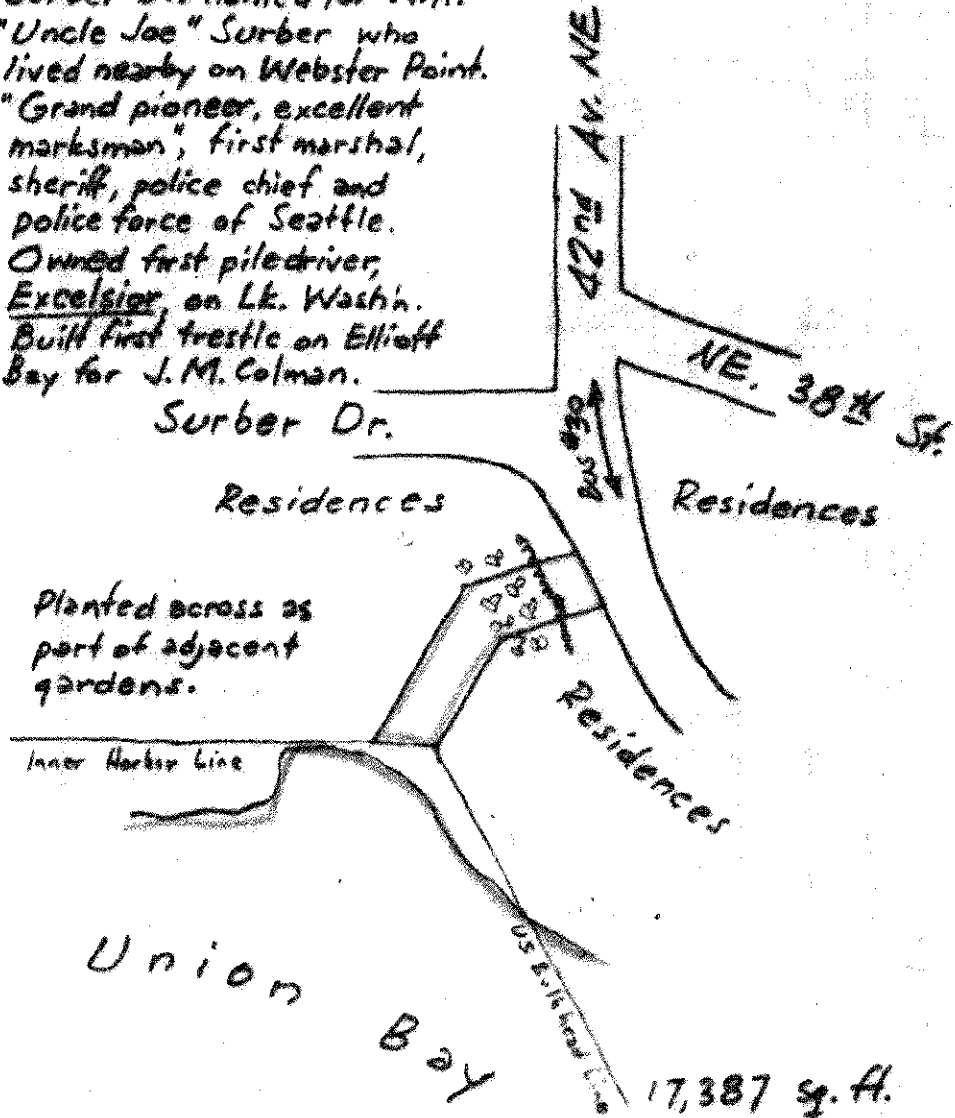 "Uncle Joe" Surber who
lived nearby on Webster Point.
"Grand pioneer, excellent
marksman", first marshal,
sheriff, police chief and
police force of Seattle.
Owned first piledriver,
Excelsior, on Lk. Wash'n.
Built first trestle on Elliott
Bay for J. M. Colman.
42nd Av. NE
NE. 38th St.
Surber Dr.
Bus #30
Residences
Residences
Planted across as
part of adjacent
gardens.
Residences
Inner Harbor Line
US Bulkhead Line
Union Bay
17,387 sq. ft.